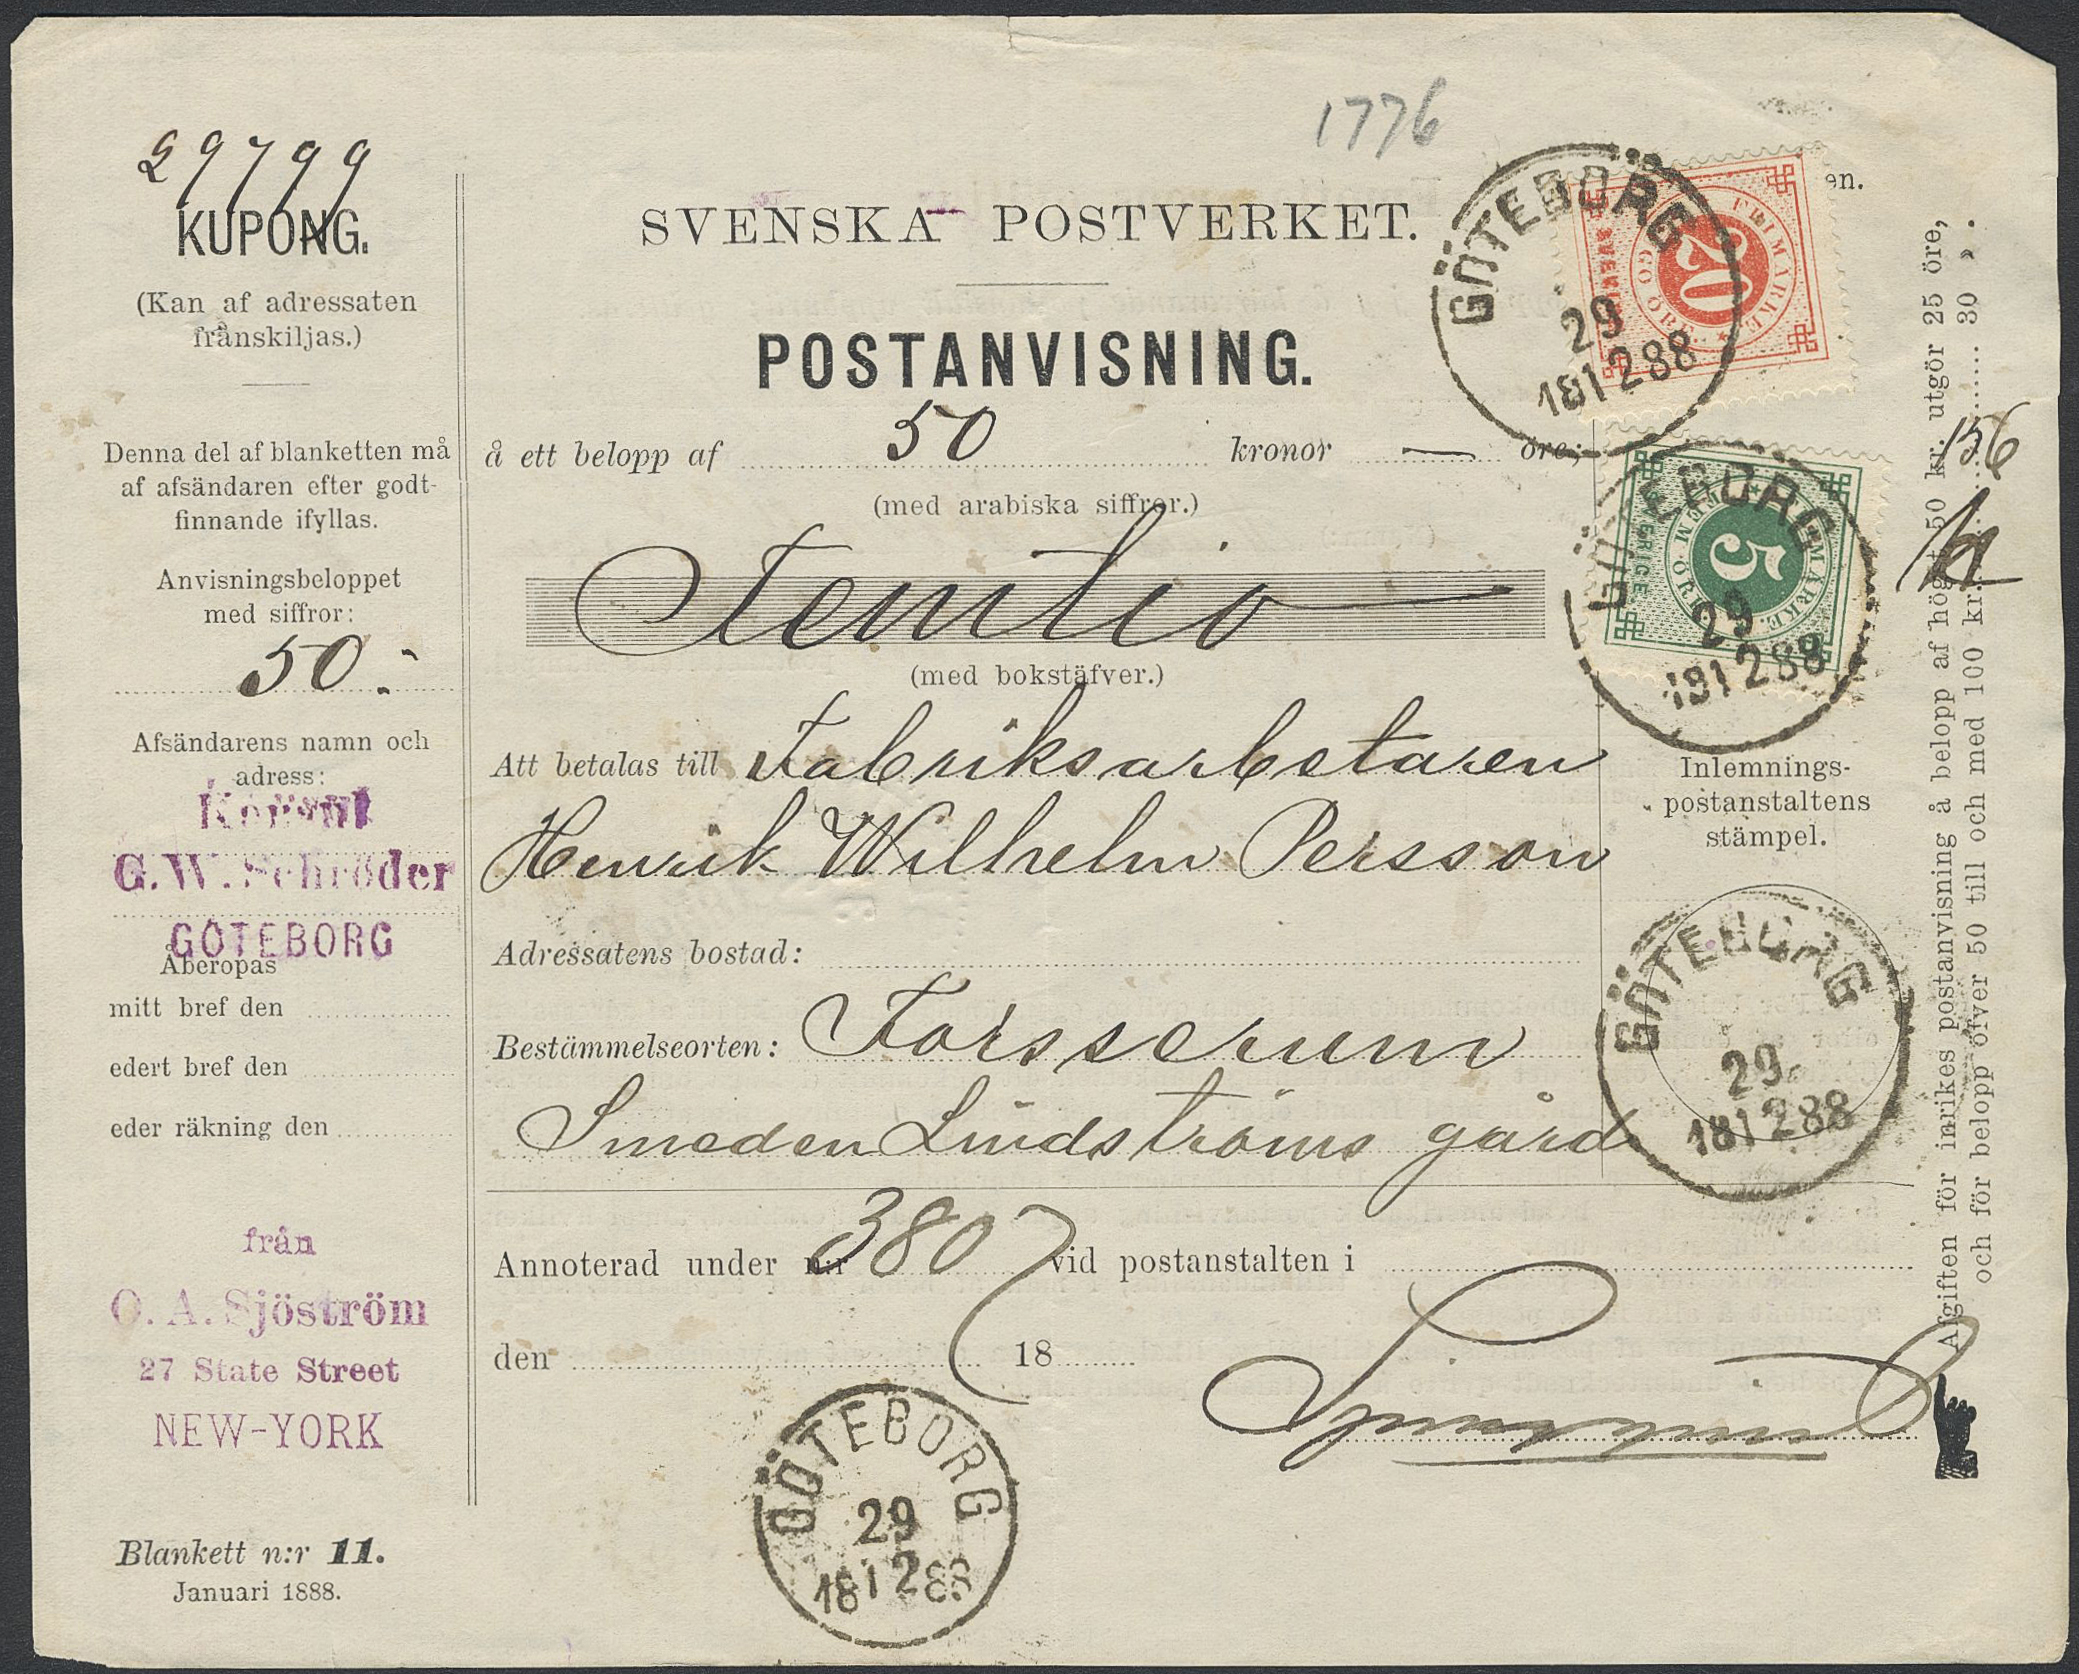 29799
KUPONG.
(Kan af adressaten
frånskiljas.)
Denna del af blanketten må
af afsändaren efter godt-
finnande ifyllas.
Anvisningsbeloppet
med siffror:
50:-
Afsändarens namn och
adress:
Konsul
G. W. Schröder
GÖTEBORG
Åberopas
mitt bref den
edert bref den
eder räkning den
från
O. A. Sjöström
27 State Street
NEW-YORK
Blankett n:r 11.
Januari 1888.
1776
SVENSKA POSTVERKET.
POSTANVISNING.
å ett belopp af 50 kronor — öre;
(med arabiska siffror.)
Femtio
(med bokstäfver.)
Att betalas till Fabriksarbetaren
Henrik Wilhelm Persson
Adressatens bostad:
Bestämmelseorten: Forsserum
Smeden Lindströms gård
Annoterad under n:r 3807 vid postanstalten i
den 18
GÖTEBORG
29
18 12 88
en.
FRIMÄRKE
SVERIGE
20
TJUGO ÖRE
GÖTEBORG
29
18 12 88
FRIMÄRKE
SVERIGE
5
FEM ÖRE
GÖTEBORG
29
18 12 88
Inlemnings-
postanstaltens
stämpel.
GÖTEBORG
29
18 12 88
156
Afgiften för inrikes postanvisning å belopp af högst 50 kr. utgör 25 öre,
och för belopp öfver 50 till och med 100 kr. 30 ».